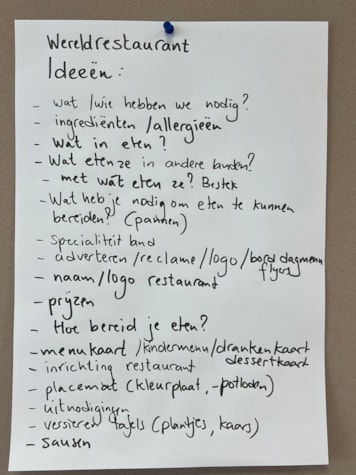 Wereldrestaurant
Ideeën :
- wat /wie hebben we nodig?
- ingrediënten /allergieën
- wat in eten ?
- Wat eten ze in andere landen?
- met wat eten ze? Bestek
- Wat heb je nodig om eten te kunnen
bereiden? (pannen)
- Specialiteit land
- adverteren /reclame /logo /bord dagmenu
flyers
- naam/logo restaurant
- prijzen
- Hoe bereid je eten?
- menukaart /kindermenu/drankenkaart
dessertkaart
- inrichting restaurant
- placemat (kleurplaat, -potloden)
- uitnodigingen
- versieren tafels (plantjes, kaars)
- sausen